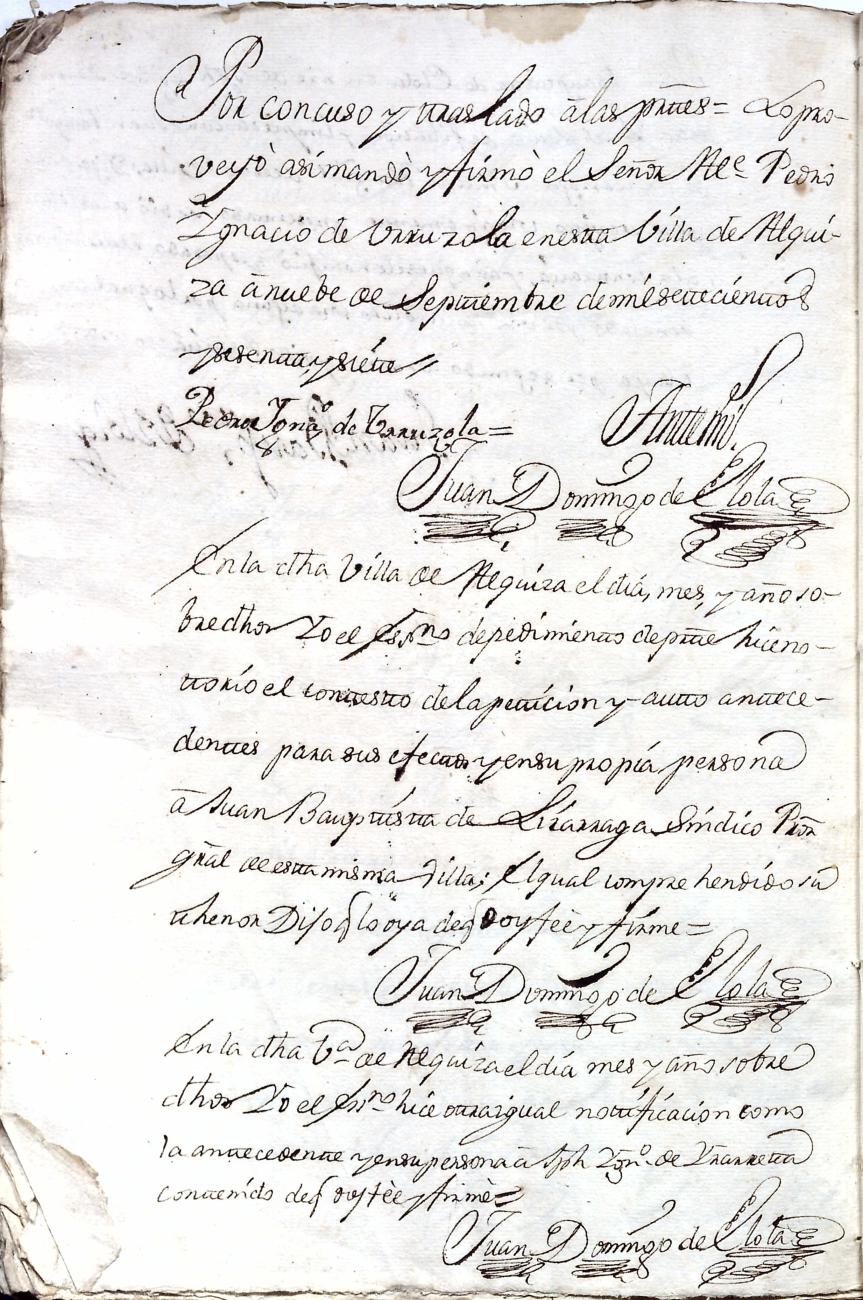 Por concuso y traslado â las prttes= Lo pro-
veyò asi mandò y firmò el Señor Alce Pedro
Ygnacio de Urruzola en esta Villa de Alqui-
za â nuebe de Septtiembre de mil settecienttos
y sesentta, y siétte
Pedro Ignaº de Urruzola= Antte mi
Juan Domingo de Elola
En la dha Villa de Alquiza el dia, mes, y año so-
bredhos Yo el Essno de pedimiento de prtte hice no-
ttorio el contestto de la petticion y autto anttece-
denttes para sus efectos y en su propia persona
â Juan Bauptistta de Lizarraga Sindico Pror
gral de esta misma Villa; el qual comprehendido su
thenor Dijo q lo oya de q doy feè y firme=
Juan Domingo de Elola
En la dha Vª de Alquiza el dia mes y año sobre
dhos Yo el Essno hice ottra igual nottificacion como
la anttecedente y en su persona â Jph Ygnº de Yrarretta
conttenido de q doy feè y firmè=
Juan Domingo de Elola